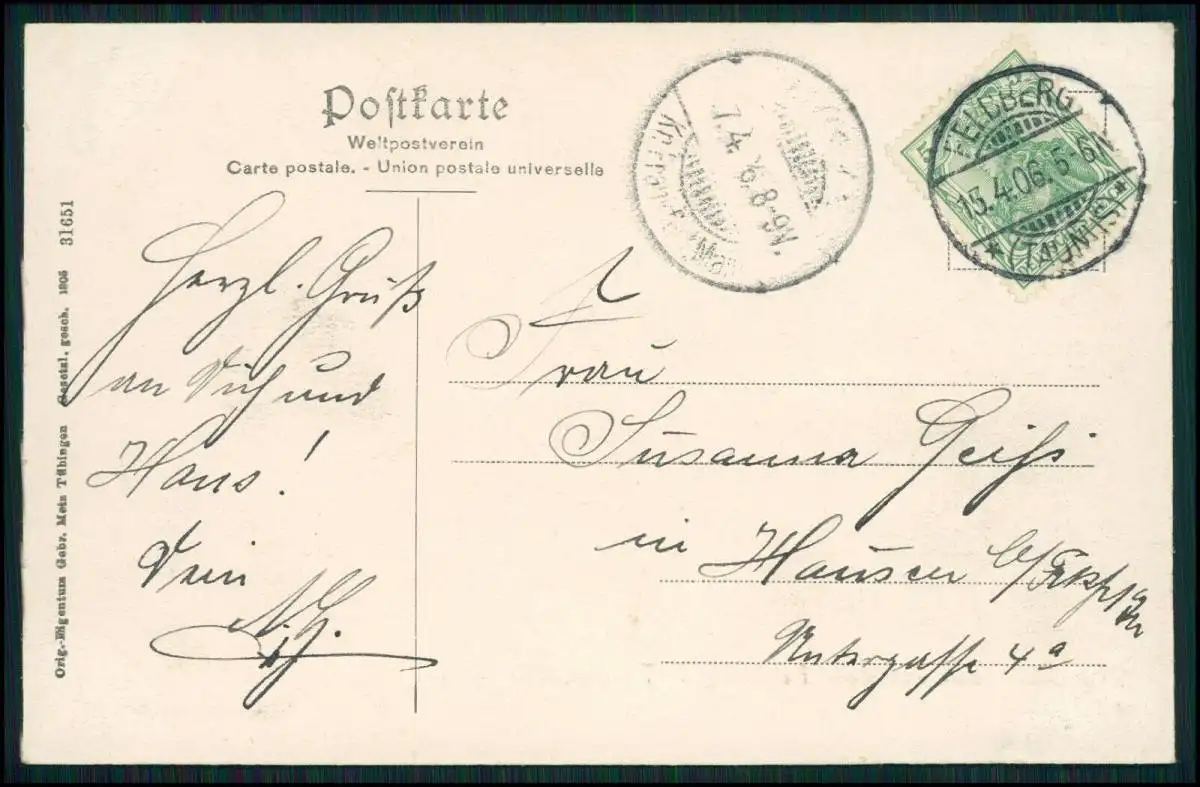 Postkarte
Weltpostverein
Carte postale. - Union postale universelle
31651
Orig.-Eigentum Gebr. Metz Tübingen Gesetzl. gesch. 1905
7.4. 6. 8-9V.
FELDBERG
15.4.06. 5-6N
* (TAUNUS) *
5
Herzl. Gruß
an Dich und
Hans!
Dein
Frau
Susanna Geiß
in Hausen b/
Untergasse 4a